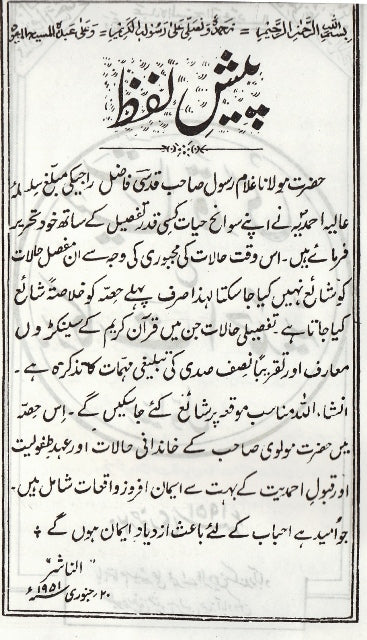 بسم اللہ الرحمٰن الرحیم = نحمدہٗ و نصلی علیٰ رسولہ الکریم = و علیٰ عبدہ المسیح الموعود
پیش لفظ
حضرت مولانا غلام رسول صاحب قدسی فاضل راجیکی مبلغ سلسلہ
عالیہ احمدیہ نے اپنے سوانح حیات کسی قدر تفصیل کے ساتھ خود تحریر
فرمائے ہیں۔ اس وقت حالات کی مجبوری کی وجہ سے ان مفصل حالات
کو شائع نہیں کیا جا سکتا لہذا صرف پہلے حصہ کو خلاصتہً شائع
کیا جاتا ہے۔ تفصیلی حالات جن میں قرآن کریم کے سینکڑوں
معارف اور تقریباً نصف صدی کی تبلیغی مہمات کا تذکرہ ہے۔
انشاء اللہ مناسب موقعہ پر شائع کئے جا سکیں گے۔ اس حصہ
میں حضرت مولوی صاحب کے خاندانی حالات اور عہد طفولیت
اور قبول احمدیت کے بہت سے ایمان افروز واقعات شامل ہیں۔
جو امید ہے احباب کے لئے باعث ازدیاد ایمان ہوں گے
"الناشر"
۲۰ جنوری ۱۹۵۱ء